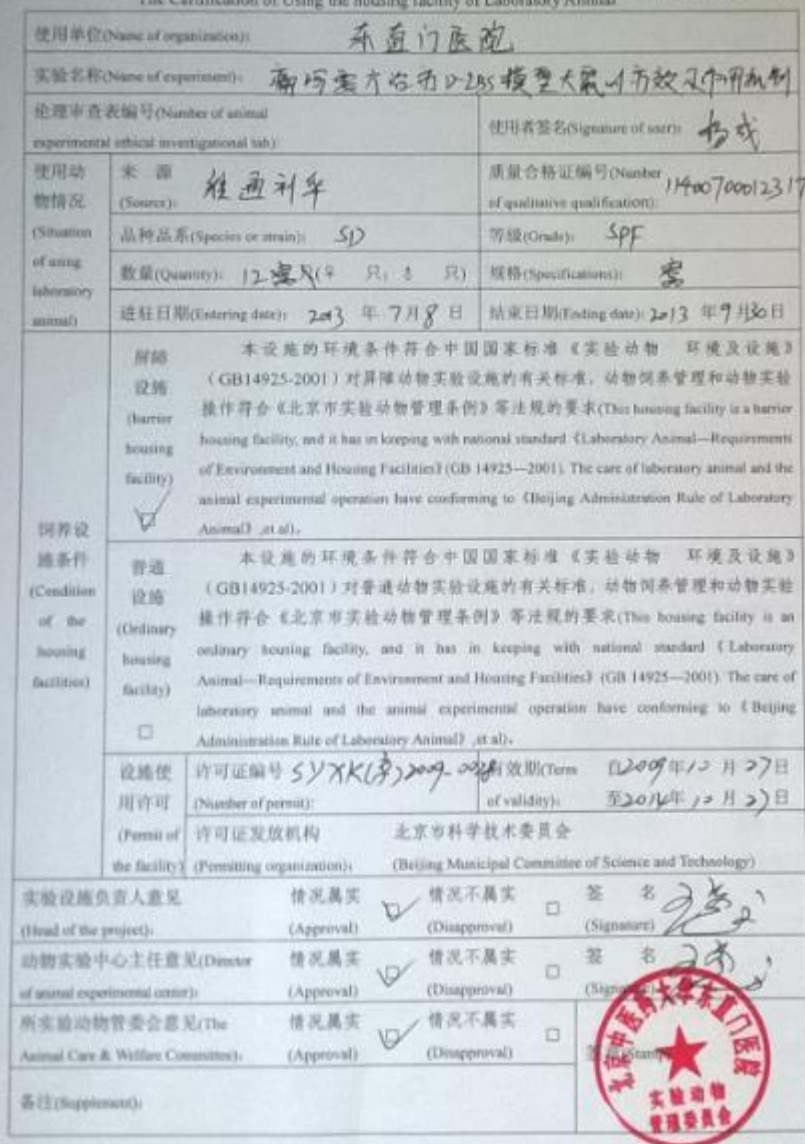 The Certification of Using the housing facility of Laboratory Animal
使用单位(Name of organization): 东直门医院
实验名称(Name of experiment): D-IBS模型大鼠
伦理审查表编号(Number of animal
experimental ethical investigational tab):
使用者签名(Signature of user):
使用动
物情况
(Situation
of using
laboratory
animal)
来 源
(Source): 维通利华
质量合格证编号(Number
of qualitative qualification): 11400700012317
品种品系(Species or strain): SD
等级(Grade): SPF
数量(Quantity): 12 只(♀ 只; ♂ 只)
规格(Specifications):
进驻日期(Entering date): 2013 年 7月 8 日
结束日期(Ending date): 2013 年 9月30日
饲养设
施条件
(Condition
of the
housing
facilities)
屏障
设施
(barrier
housing
facility)
本设施的环境条件符合中国国家标准《实验动物 环境及设施》
(GB14925-2001)对屏障动物实验设施的有关标准,动物饲养管理和动物实验
操作符合《北京市实验动物管理条例》等法规的要求(This housing facility is a barrier
housing facility, and it has in keeping with national standard《Laboratory Animal—Requirements
of Environment and Housing Facilities》(GB 14925—2001). The care of laboratory animal and the
animal experimental operation have conforming to《Beijing Administration Rule of Laboratory
Animal》,et al)。
普通
设施
(Ordinary
housing
facility)
本设施的环境条件符合中国国家标准《实验动物 环境及设施》
(GB14925-2001)对普通动物实验设施的有关标准,动物饲养管理和动物实验
操作符合《北京市实验动物管理条例》等法规的要求(This housing facility is an
ordinary housing facility, and it has in keeping with national standard《Laboratory
Animal—Requirements of Environment and Housing Facilities》(GB 14925—2001). The care of
laboratory animal and the animal experimental operation have conforming to《Beijing
Administration Rule of Laboratory Animal》,et al)。
设施使
用许可
(Permit of
the facility)
许可证编号 SYXK(京)2009-
(Number of permit):
有效期(Term
of validity):
自2009年12月27日
至2014年12月27日
许可证发放机构
(Permitting organization):
北京市科学技术委员会
(Beijing Municipal Committee of Science and Technology)
实验设施负责人意见
(Head of the project):
情况属实
(Approval)
情况不属实
(Disapproval)
签 名
(Signature)
动物实验中心主任意见(Director
of animal experimental center):
情况属实
(Approval)
情况不属实
(Disapproval)
签 名
(Signature)
所实验动物管委会意见(The
Animal Care & Welfare Committee):
情况属实
(Approval)
情况不属实
(Disapproval)
(Stamp)
北京中医药大学东直门医院
实验动物
管理委员会
备注(Supplement):